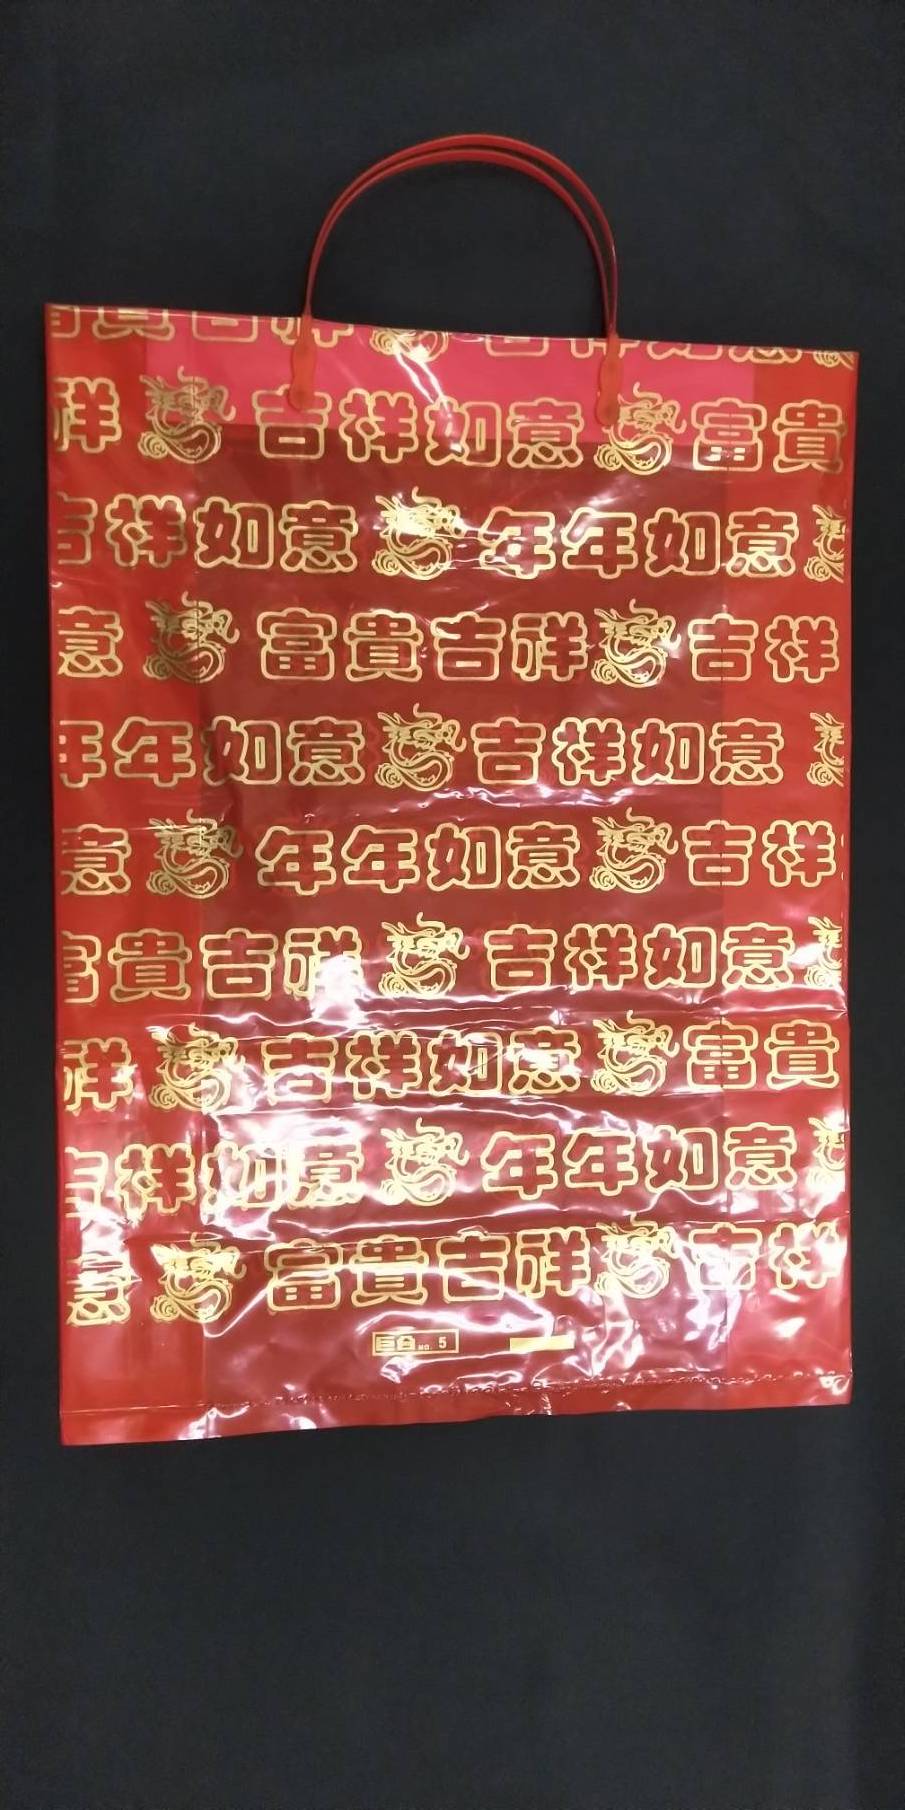 富貴吉祥 吉祥如意
祥 吉祥如意 富貴
吉祥如意 年年如意
意 富貴吉祥 吉祥
年年如意 吉祥如意
意 年年如意 吉祥
富貴吉祥 吉祥如意
祥 吉祥如意 富貴
吉祥如意 年年如意
意 富貴吉祥 吉祥
巨合 NO. 5